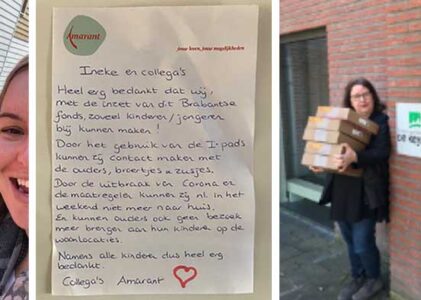 Amarant
jouw leven, jouw mogelijkheden
Ineke en collega's
Heel erg bedankt dat wij,
met de inzet van dit Brabantse
fonds, zoveel kinderen/jongeren
blij kunnen maken!
Door het gebruik van de I-pads
kunnen zij contact maken met
de ouders, broertjes & zusjes.
Door de uitbraak van Corona en
de maatregelen kunnen zij nl. in het
weekend niet meer naar huis.
En kunnen ouders ook geen bezoek
meer brengen aan hun kinderen op de
woonlocaties.
Namens alle kinderen dus heel erg
bedankt.
Collega's Amarant